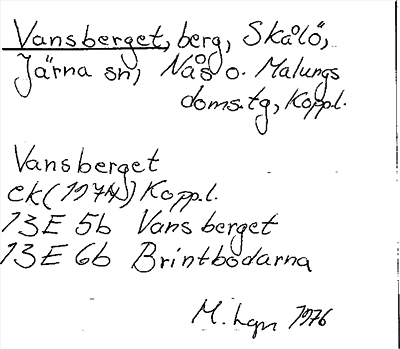 Vansberget, berg, Skålö,
Järna sn, Nås o. Malungs
doms.tg, Koppl.
Vansberget
ek(1974) Koppl.
13E 5b Vansberget
13E 6b Brintbodarna
M. 1976